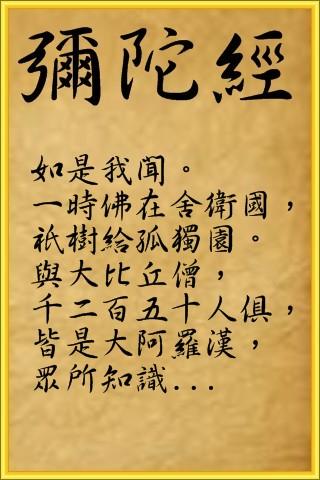 彌陀經
如是我聞。
一時佛在舍衛國，
祇樹給孤獨園。
與大比丘僧，
千二百五十人俱，
皆是大阿羅漢，
眾所知識...